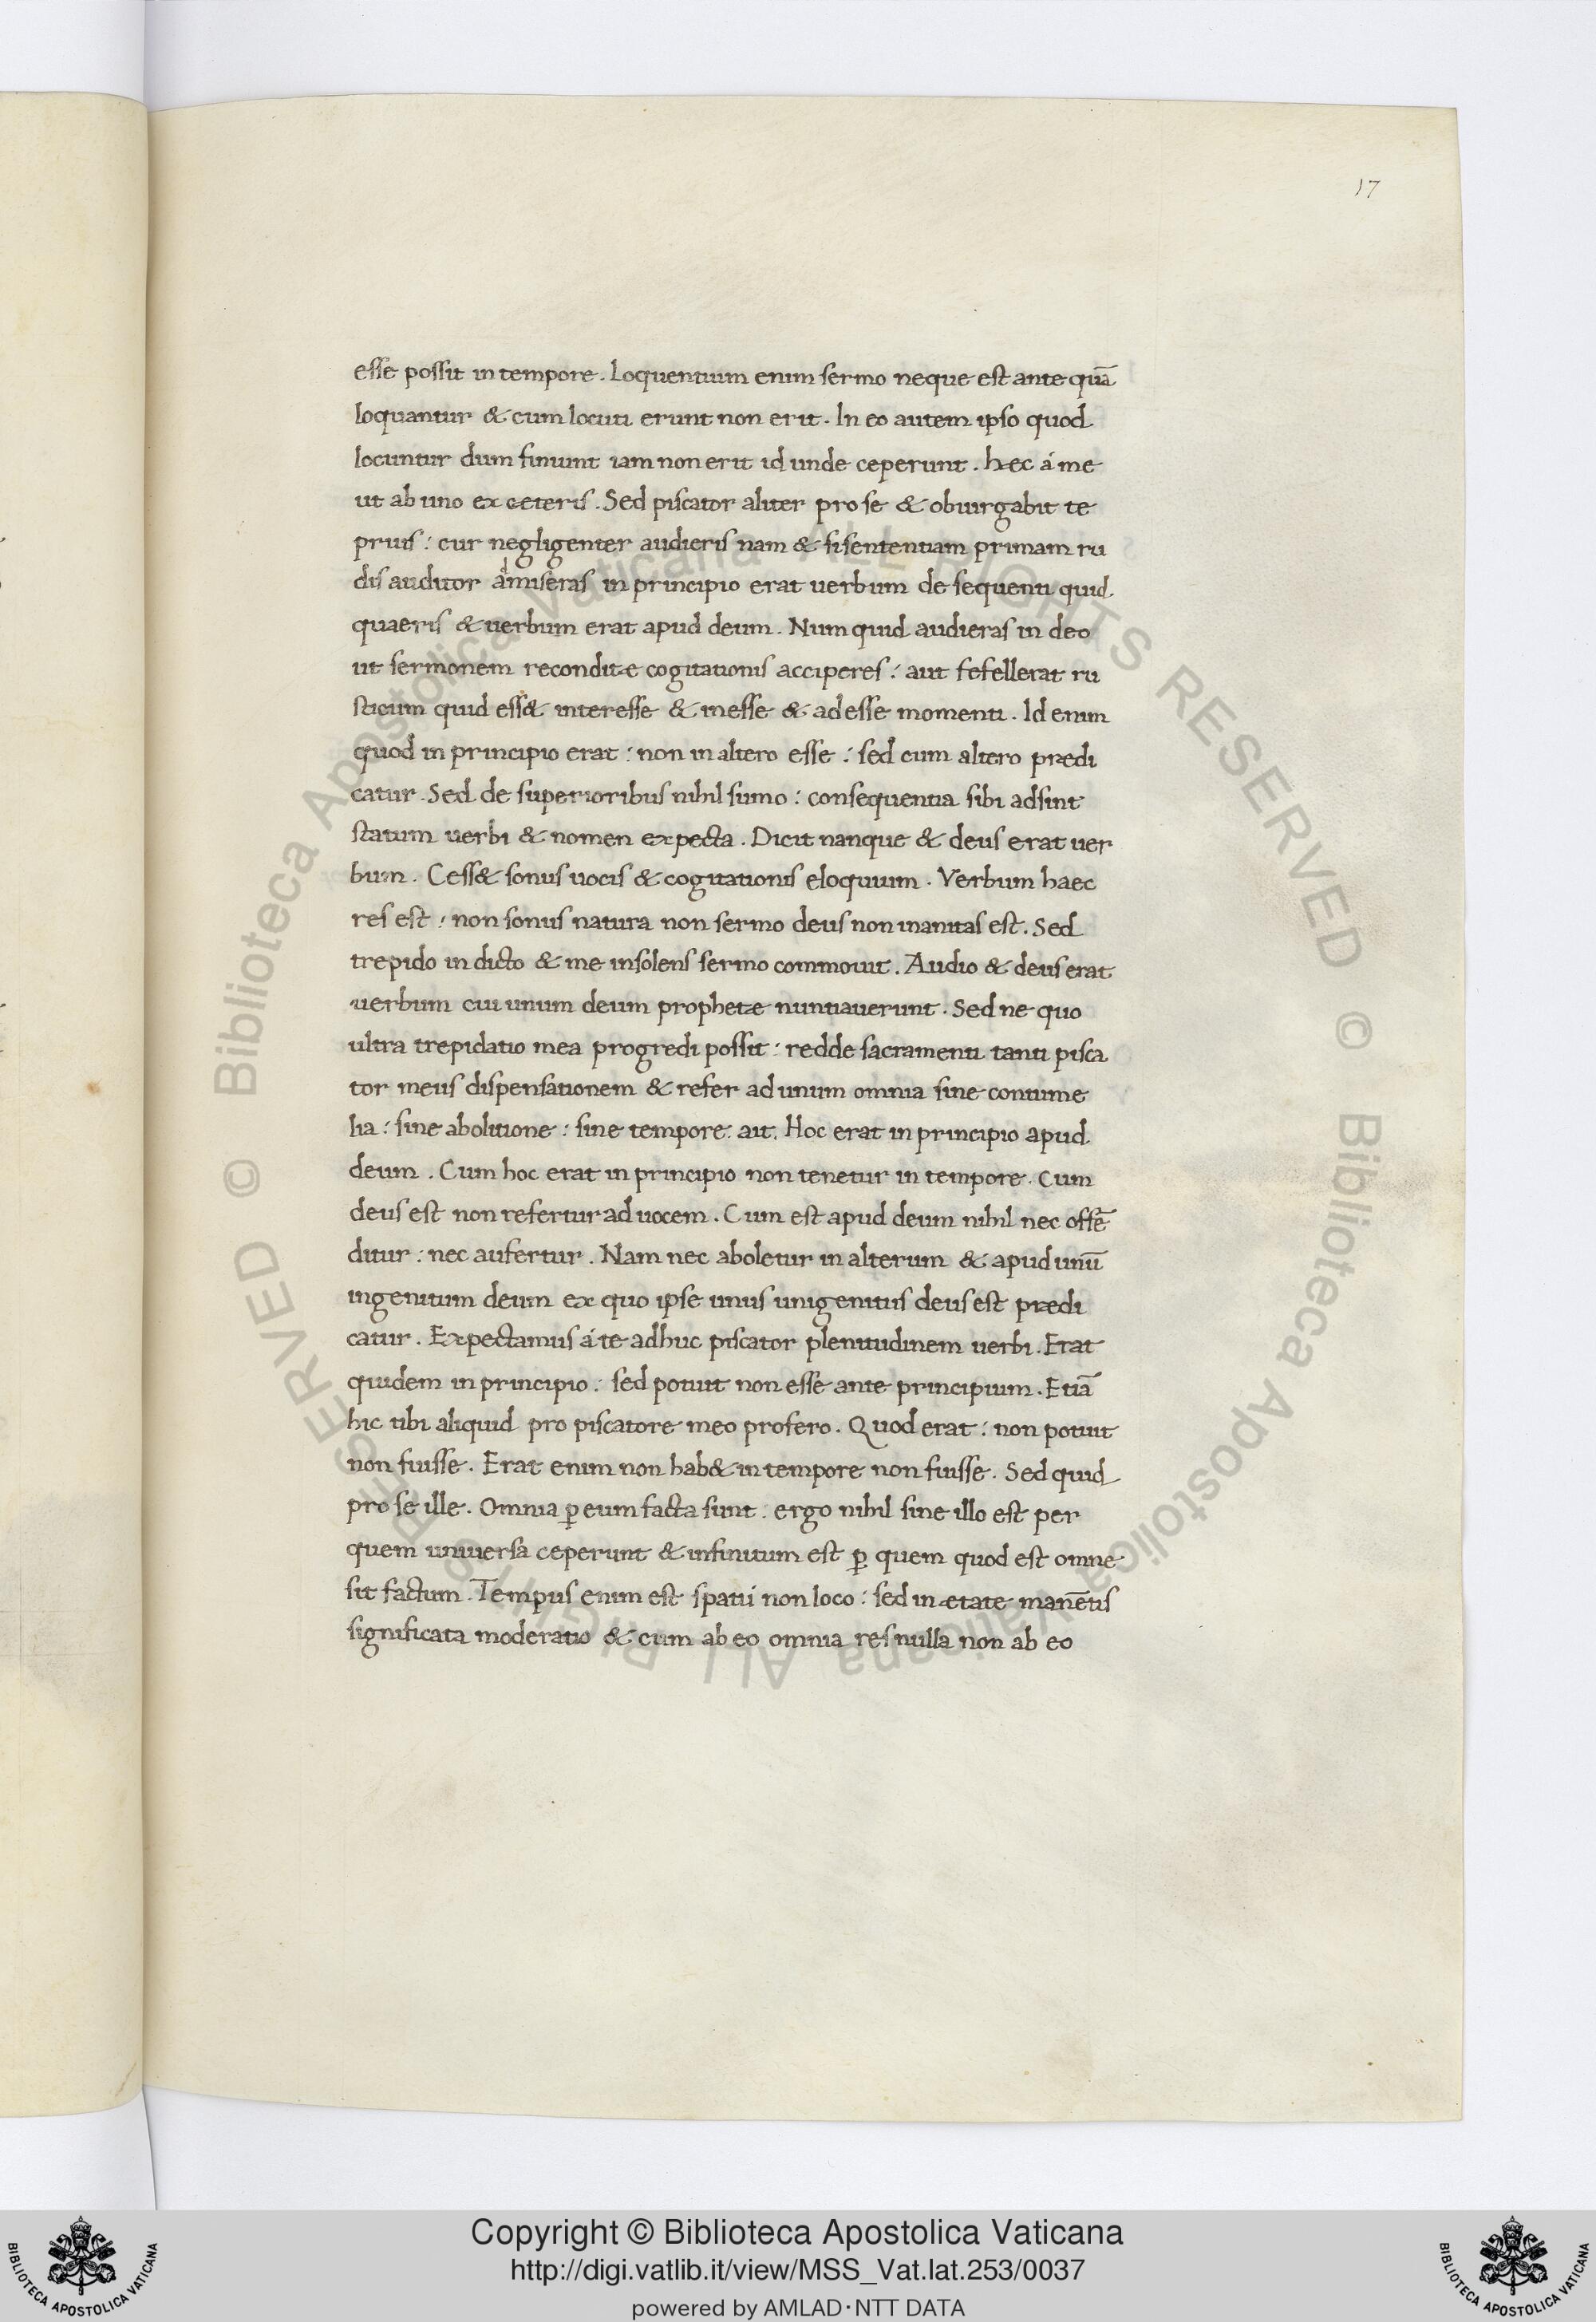 17
esse possit in tempore. Loquentium enim sermo neque est ante quā
loquantur & cum locuti erunt non erit. In eo autem ipso quod
locuntur dum finiunt iam non erit id unde ceperunt. hęc á me
ut ab uno ex ceteris. Sed piscator aliter pro se & obiurgabit te
prius: cur negligenter audieris nam & si sententiam primam ru
dis auditor admiseras in principio erat uerbum de sequenti quid
quaeris & uerbum erat apud deum. Num quid audieras in deo
ut sermonem reconditę cogitationis acciperes: aut fefellerat ru
sticum quid ess& interesse & inesse & adesse momenti. Id enim
quod in principio erat: non in altero esse: sed cum altero prędi
catur. Sed de superioribus nihil sumo: consequentia sibi adsint
statum uerbi & nomen expecta. Dicit nanque & deus erat uer
bum. Cess& sonus uocis & cogitationis eloquium. Verbum haec
res est: non sonus natura non sermo deus non inanitas est. Sed
trepido in dicto & me insolens sermo commouit. Audio & deus erat
uerbum cui unum deum prophetę nuntiauerunt. Sed ne quo
ultra trepidatio mea progredi possit: redde sacramenti tanti pisca
tor meus dispensationem & refer ad unum omnia sine contume
lia: sine abolitione: sine tempore. ait. Hoc erat in principio apud
deum. Cum hoc erat in principio non tenetur in tempore. Cum
deus est non refertur ad uocem. Cum est apud deum nihil nec offē
ditur: nec aufertur. Nam nec aboletur in alterum & apud unū
ingenitum deum ex quo ipse unus unigenitus deus est prędi
catur. Expectamus á te adhuc piscator plenitudinem uerbi. Erat
quidem in principio: sed potuit non esse ante principium. Etiā
hic tibi aliquid pro piscatore meo profero. Quod erat: non potuit
non fuisse. Erat enim non hab& in tempore non fuisse. Sed quid
pro se ille. Omnia ꝑ eum facta sunt: ergo nihil sine illo est per
quem uniuersa ceperunt & infinitum est ꝑ quem quod est omne
sit factum. Tempus enim est spatii non loco: sed in ętate manētis
significata moderatio & cum ab eo omnia res nulla non ab eo
© Biblioteca Apostolica Vaticana ALL RIGHTS RESERVED
© Biblioteca Apostolica Vaticana ALL RIGHTS RESERVED
Copyright © Biblioteca Apostolica Vaticana
http://digi.vatlib.it/view/MSS_Vat.lat.253/0037
powered by AMLAD·NTT DATA
BIBLIOTECA APOSTOLICA VATICANA
BIBLIOTECA APOSTOLICA VATICANA